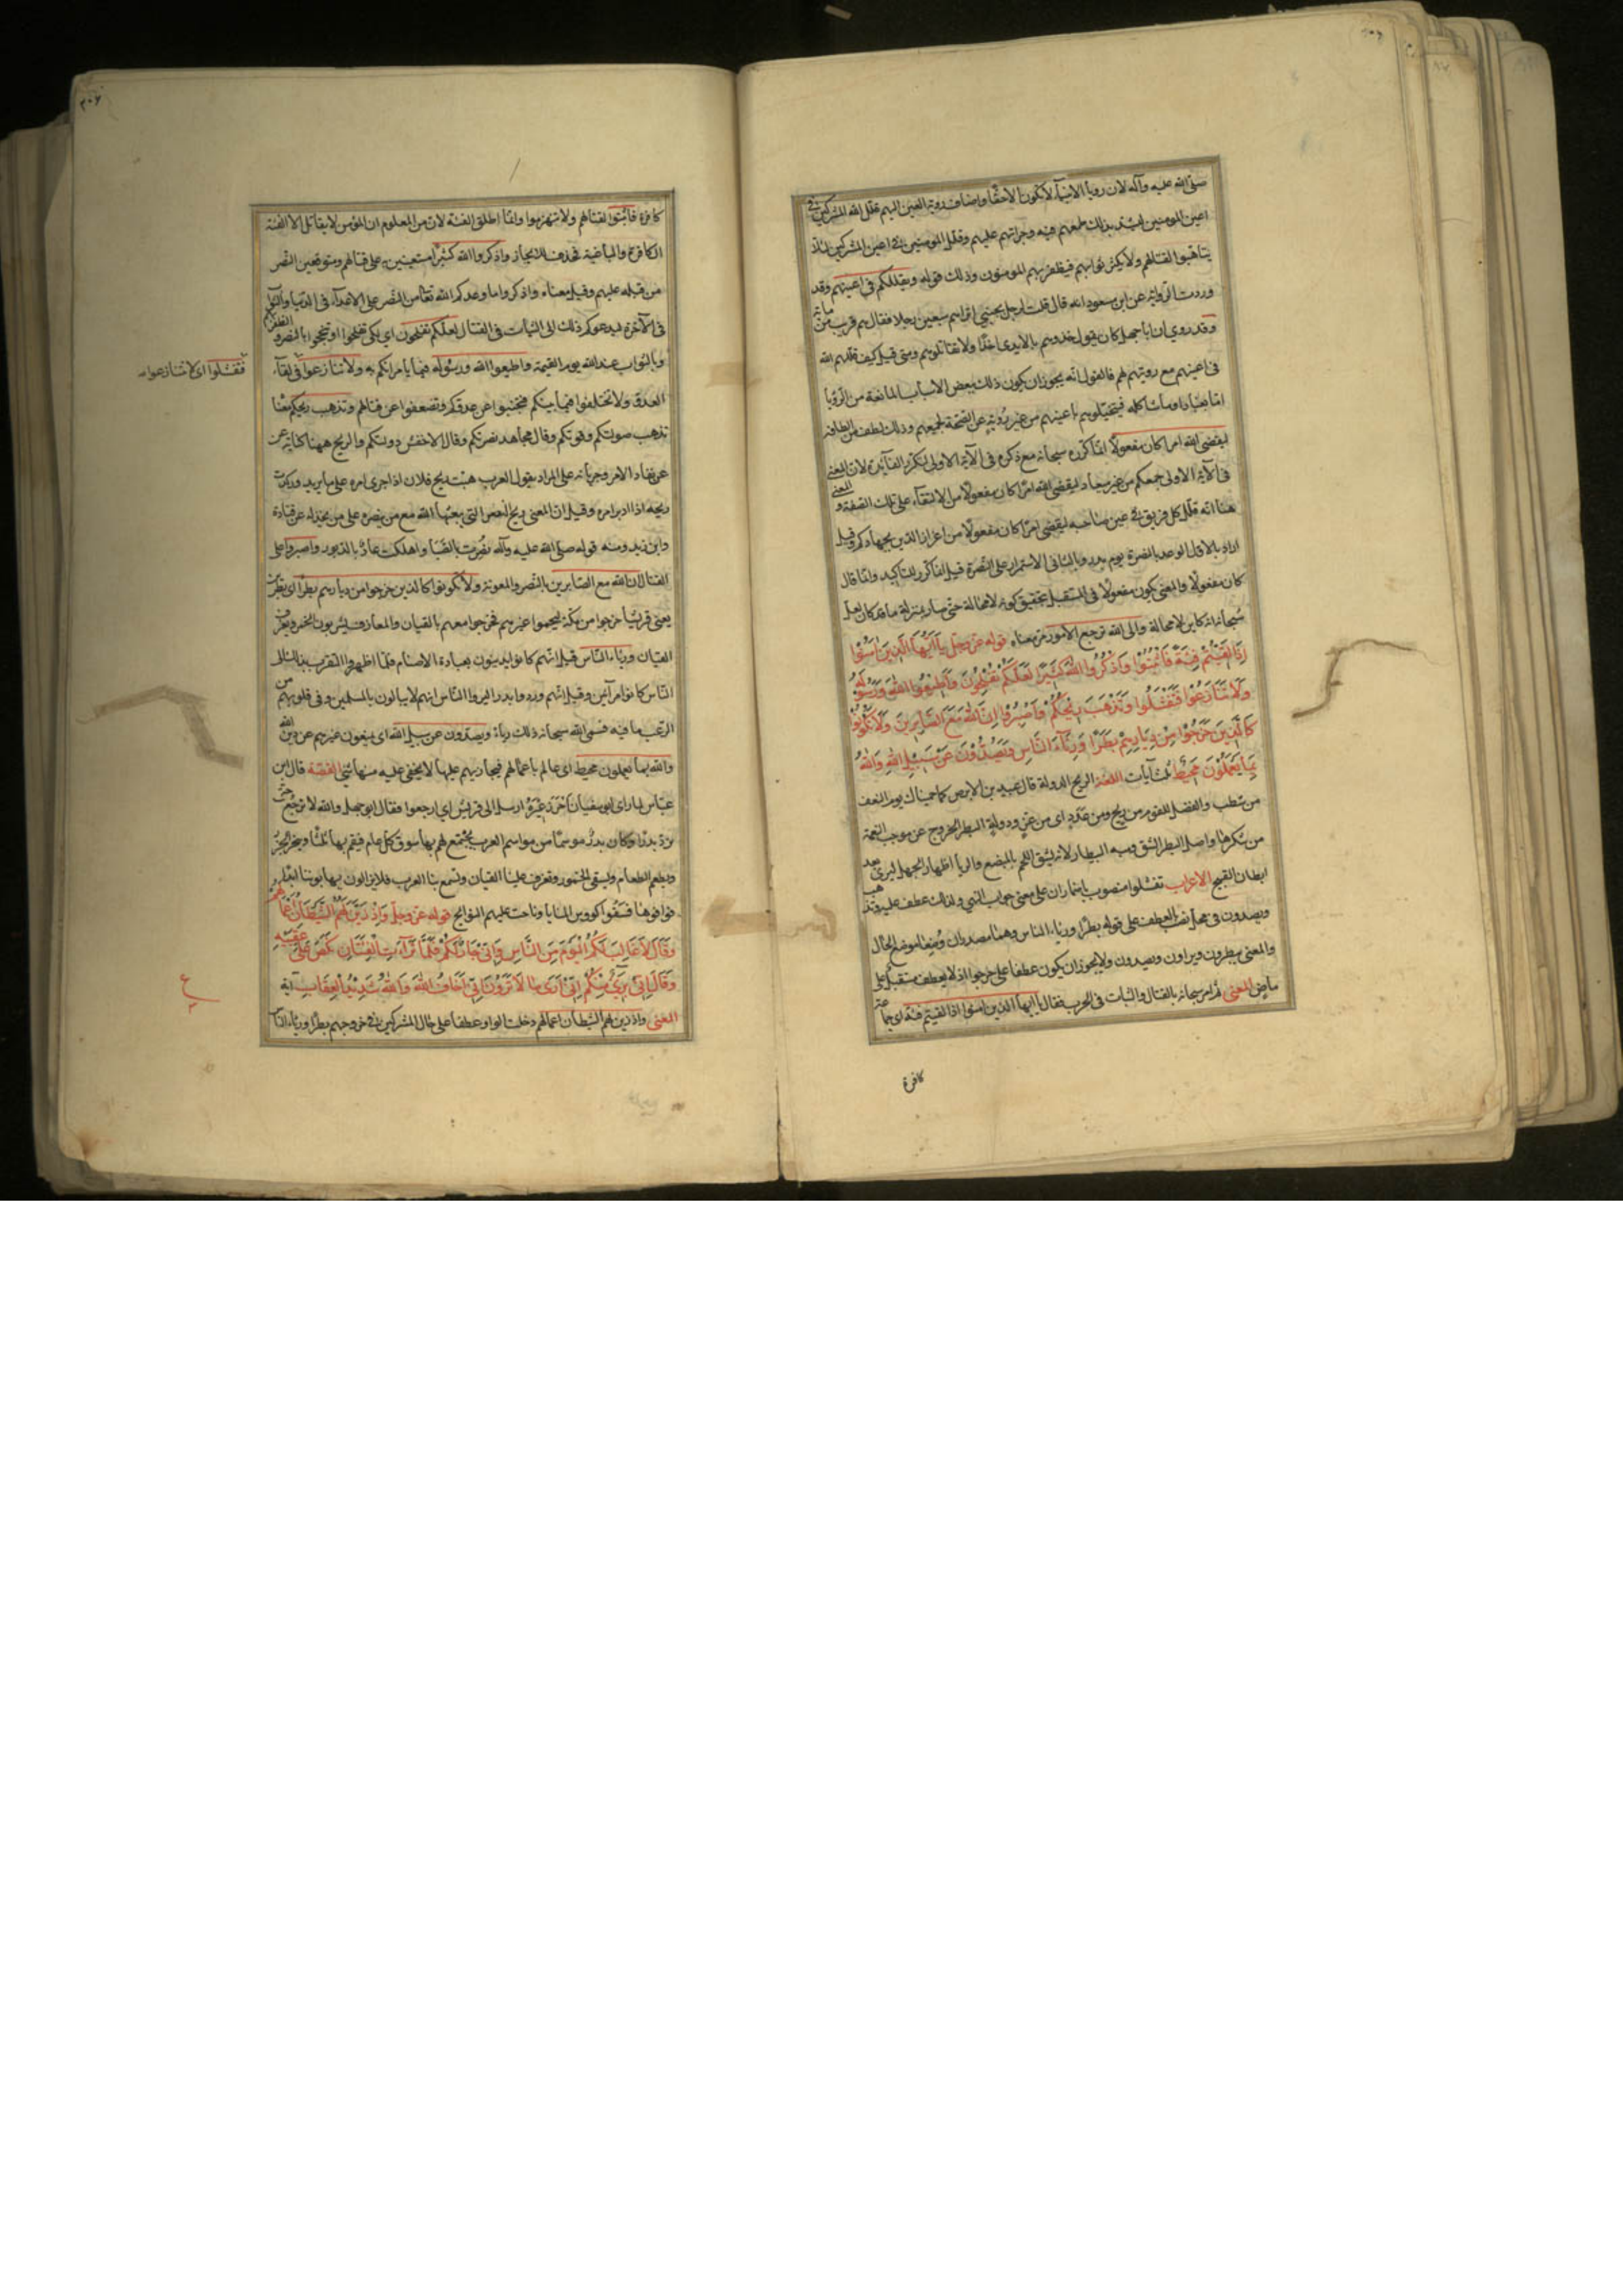 صلى الله عليه وآله لان رويا الانبياء لا تكون الا حقا واضاف روية العين اليهم فقلل الله المشركين في
اعين المومنين ليشتد بذلك طمعهم فيه وجراتهم عليهم وقلل المومنين في اعين المشركين لئلا
يتاهبوا لقتالهم ولا يكثر ثوابهم فيظفر بهم المومنون وذلك قوله ويقللكم في اعينهم وقد
وردت الرواية عن ابن مسعود انه قال قلت لرجل بجنبي اتراهم سبعين رجلا فقال هم قريب من ماية
وقد روي ان ابا جهل كان يقول خذوهم بالايدي اخذا ولا تقاتلوهم ومتى قيل كيف قللهم الله
في اعينهم مع رويتهم لهم فالقول انه يجوز ان يكون ذلك ببعض الاسباب المانعة من الرؤيا
اما بغبار او ما شاكله فيتخيلونهم باعينهم من غير رؤية عن الصحة لجميعهم وذلك لطف من الطافه
ليقضي الله امرا كان مفعولا انما كرره سبحانه مع ذكره في الآية الاولى لتكرر الفايدة لان المعنى
في الآية الاولى جمعكم من غير ميعاد ليقضي الله امرا كان مفعولا من الالتقاء على تلك الصفة و المعنى
هنا انه قلل كل فريق في عين صاحبه ليقضي امرا كان مفعولا من اعزاز الدين بجهادكم وقيل
اراد بالاول الوعد بالنصرة يوم بدر وبالثاني الاستمرار على النصرة قيل انما كرر للتاكيد وانما قال
كان مفعولا والمعنى يكون مفعولا في المستقبل لتحقيق كونه لا محالة حتى صار بمنزلة ما قد كان لعلمه
سبحانه انه كاين لا محالة والى الله ترجع الامور مر معناه قوله عز وجل يا أيها الذين آمنوا
إذا لقيتم فئة فاثبتوا واذكروا الله كثيرا لعلكم تفلحون وأطيعوا الله ورسوله
ولا تنازعوا فتفشلوا وتذهب ريحكم واصبروا إن الله مع الصابرين ولا تكونوا
كالذين خرجوا من ديارهم بطرا ورئاء الناس ويصدون عن سبيل الله والله
بما يعملون محيط ثلث آيات اللغة الريح الدولة قال عبيد بن الابرص كما حميناك يوم النعف
من شطب والفضل للقوم من ريح ومن عدد اى من عز ودولة البطر الخروج عن موجب النعمة
من شكرها واصل البطر الشق ومنه البيطار لانه يشق اللحم بالمبضع والريا اظهار الجميل ليرى مع
ابطان القبيح الاعراب تفشلوا منصوب باضمار ان على معنى جواب النهي ولذلك عطف عليه وتذهب
ويصدون في محل نصب بالعطف على قوله بطرا ورياء الناس وهما مصدران وضعا موضع الحال
والمعنى يبطرون ويراون ويصدون ولا يجوز ان يكون عطفا على خرجوا اذ لا يعطف مستقبل على
ماض المعنى ثم امر سبحانه بالقتال والثبات في الحرب فقال يا ايها الذين امنوا اذا لقيتم فئة اى جماعة
كافرة
٣٠٧
كافرة فاثبتوا لقتالهم ولا تنهزموا وانما اطلق الفئة لان من المعلوم ان المؤمن لا يقاتل الا الفئة
الكافرة والباغية فحذف للايجاز واذكروا الله كثيرا مستعينين به على قتالهم ومتوقعين النصر
من قبله عليهم وقيل معناه واذكروا ما وعدكم الله تعالى من النصر على الاعداء في الدنيا والثواب
في الآخرة ليدعوكم ذلك الى الثبات في القتال لعلكم تفلحون اي لكي تفلحوا او تنجحوا بالنصر والظفر
وبالثواب عند الله يوم القيمة واطيعوا الله ورسوله فيما يأمرانكم به ولا تنازعوا في لقاء
فتفشلوا اى لا تنازعوا
العدو ولا تختلفوا فيما بينكم فتجبنوا عن عدوكم وتضعفوا عن قتالهم وتذهب ريحكم معنا
تذهب صولتكم وقوتكم وقال مجاهد نصرتكم وقال الاخفش دولتكم والريح ههنا كناية عن
عن نفاذ الامر وجريانه على المراد يقول العرب هبت ريح فلان اذا جرى امره على ما يريد وركدت
ريحه اذا ادبر امره وقيل ان المعنى ريح النصر التي يبعثها الله مع من ينصره على من يخذله عن قتادة
وابن زيد ومنه قوله صلى الله عليه وآله نصرت بالصبا واهلكت عاد بالدبور واصبروا على
القتال ان الله مع الصابرين بالنصر والمعونة ولا تكونوا كالذين خرجوا من ديارهم بطرا اى بطرين
يعني قريشا خرجوا من مكة ليحموا عيرهم فخرجوا معهم بالقيان والمعازف يشربون الخمر وتعزف
القيان ورياء الناس قيل انهم كانوا يدينون بعبادة الاصنام فلما اظهروا التقرب بذلك الى
الناس كانوا مرآئين وقيل انهم وردوا بدرا ليروا الناس انهم لا يبالون بالمسلمين وفي قلوبهم من
الرعب ما فيه فسمى الله سبحانه ذلك رياء ويصدون عن سبيل الله اى يمنعون غيرهم عن دين الله
والله بما يعملون محيط اى عالم باعمالهم فيجازيهم عليها لا يخفى عليه منها شئ القصة قال ابن
عباس لما راى ابو سفيان انه احرز عيره ارسل الى قريش اي ارجعوا فقال ابو جهل والله لا نرجع حتى
نرد بدرا وكان بدر موسما من مواسم العرب يجتمع لهم بها سوق كل عام فنقيم بها ثلثا وننحر الجزر
ونطعم الطعام ونسقى الخمور وتعزف علينا القيان وتسمع بنا العرب فلا يزالون يهابوننا ابدا
فوافوها فسقوا كووس المنايا وناحت عليهم النوائح قوله عز وجل وإذ زين لهم الشيطان أعمالهم
وقال لا غالب لكم اليوم من الناس وإني جار لكم فلما تراءت الفئتان نكص على عقبيه
وقال إني بريء منكم إني أرى ما لا ترون إني أخاف الله والله شديد العقاب آية
المعنى واذ زين لهم الشيطان اعمالهم دخلت الواو عطفا على حال المشركين في خروجهم بطرا ورياء الناس